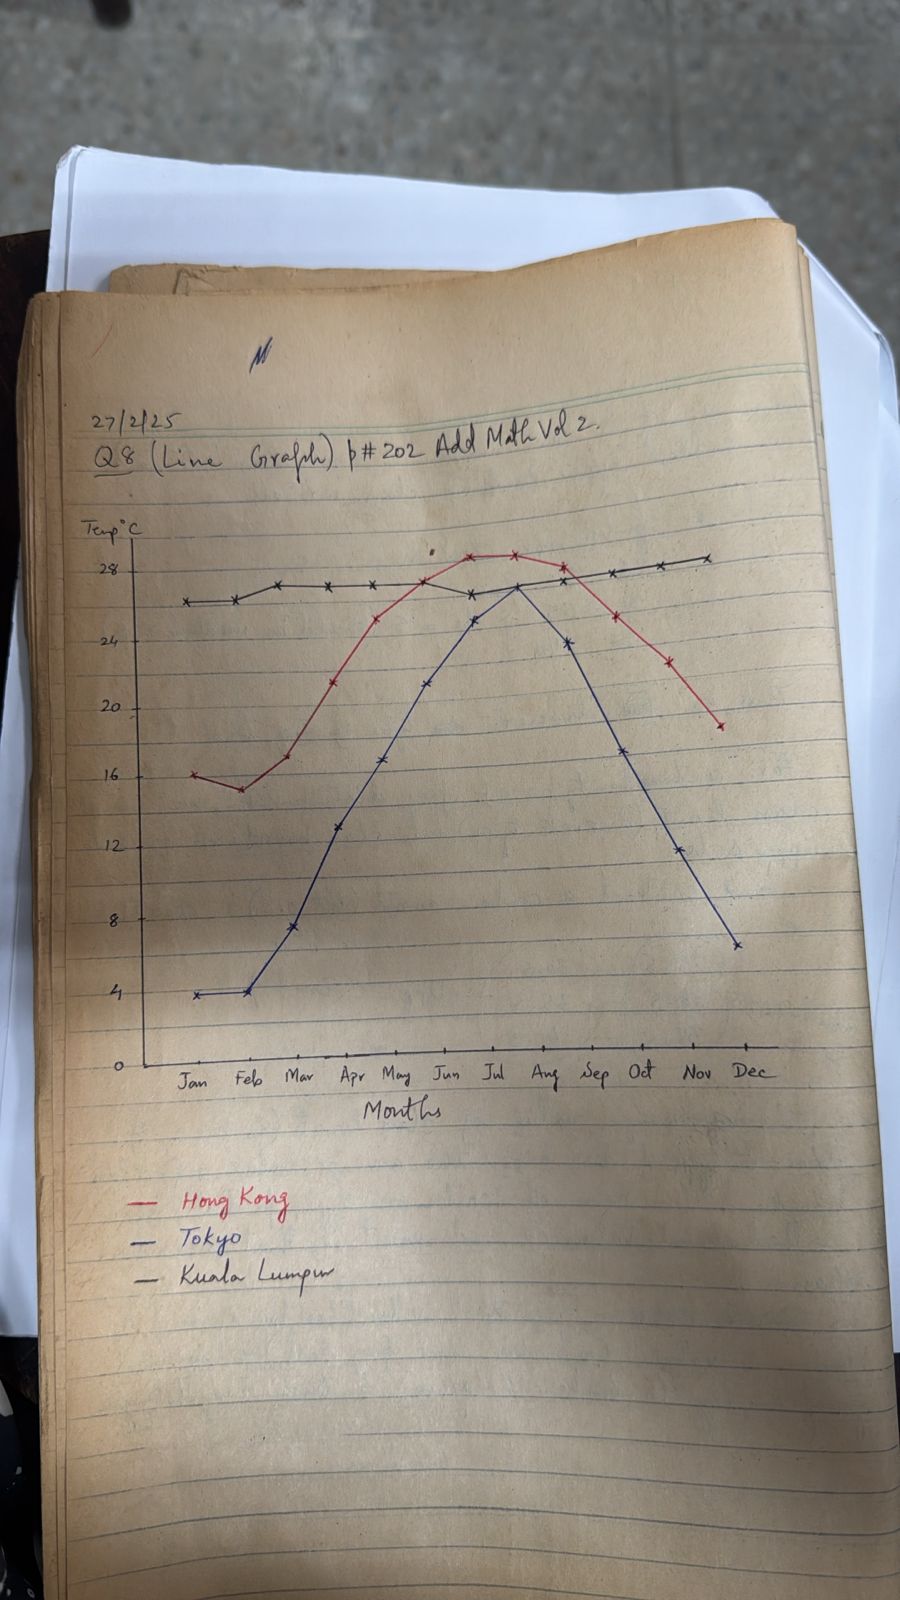 27/2/25
Q8 (Line Graph) p# 202 Add Math Vol 2.
Temp°C
28
24
20
16
12
8
4
0
Jan Feb Mar Apr May Jun Jul Aug Sep Oct Nov Dec
Months
— Hong Kong
— Tokyo
— Kuala Lumpur